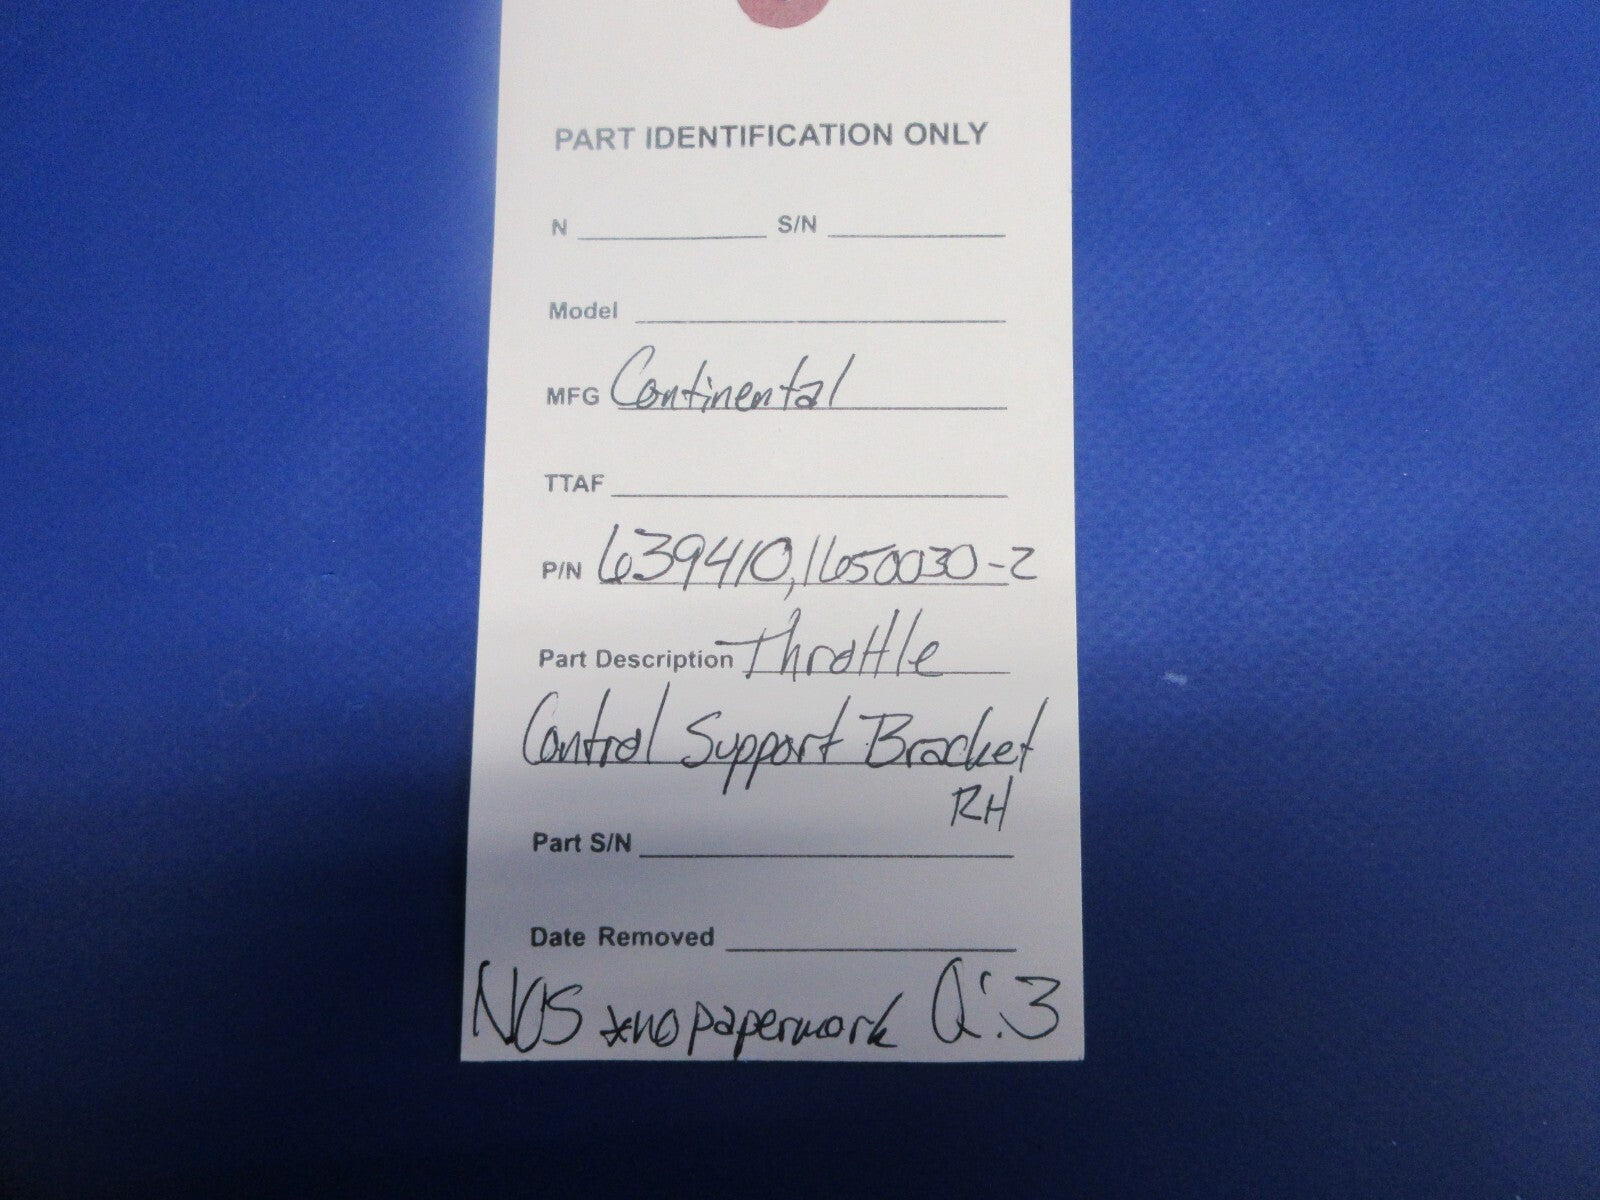 PART IDENTIFICATION ONLY
N S/N
Model
MFG Continental
TTAF
P/N 639410, 1650030-2
Part Description Throttle
Control Support Bracket
RH
Part S/N
Date Removed
NOS *no paperwork Q:3